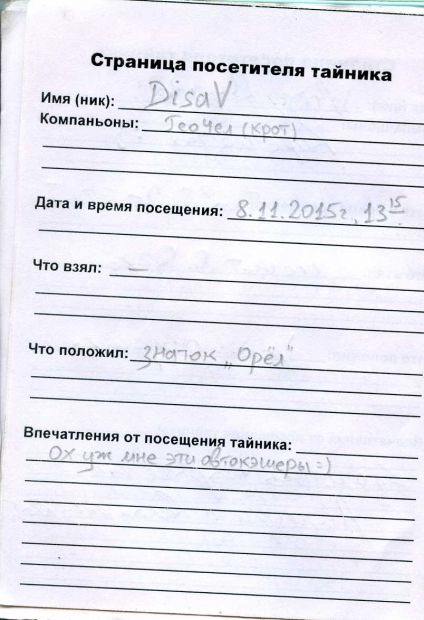 Страница посетителя тайника
Имя (ник): DisaV
Компаньоны: ГеоЧел (крот)
Дата и время посещения: 8.11.2015г, 13 15
Что взял: —
Что положил: значок „Орёл"
Впечатления от посещения тайника:
Ох уж мне эти автокэшеры =)